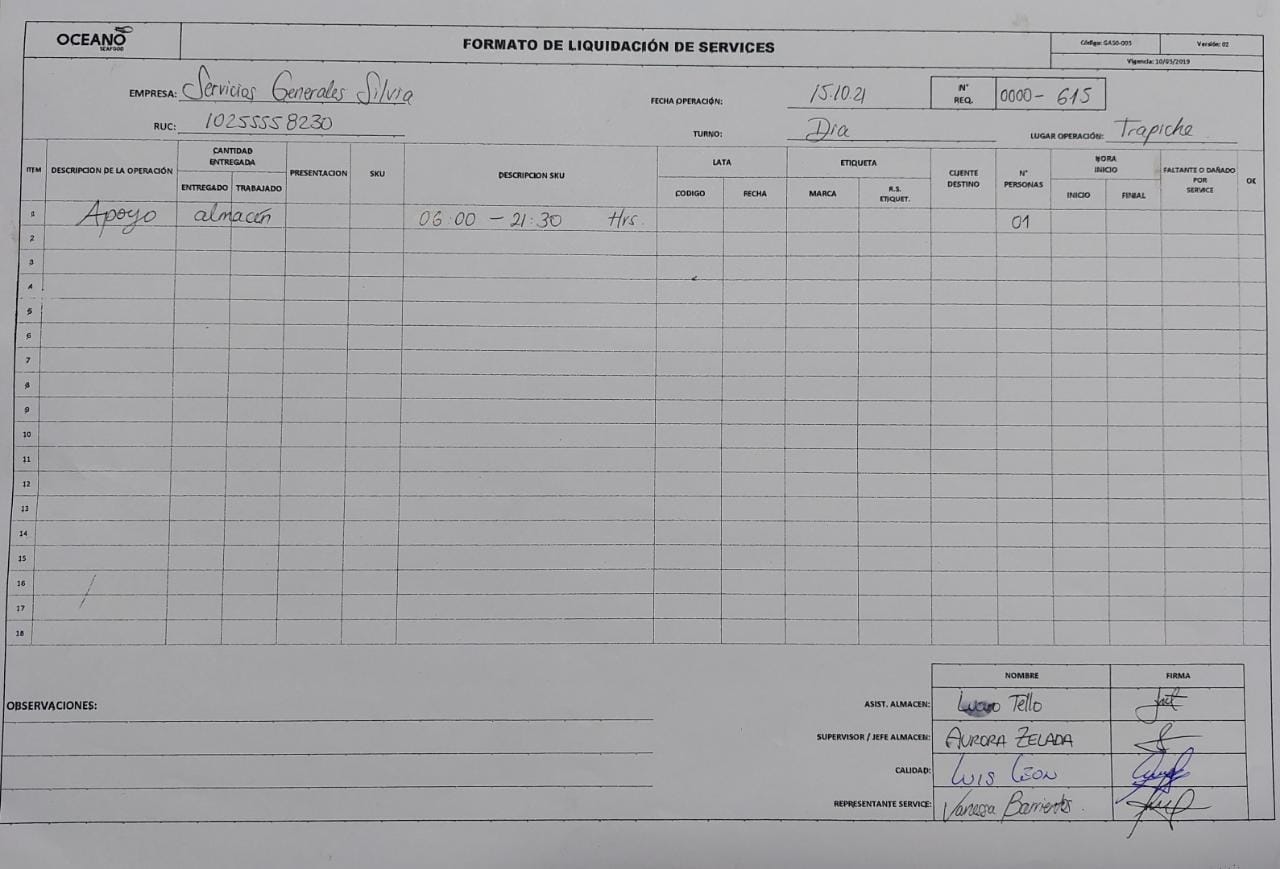 OCEANO
SEAFOOD
FORMATO DE LIQUIDACIÓN DE SERVICES
Código: GASG-005 Versión: 02
Vigencia: 10/05/2019
EMPRESA: Servicios Generales Silvia
FECHA OPERACIÓN: 15.10.21
N° REQ. 0000- 615
RUC: 10255558230
TURNO: Dia
LUGAR OPERACIÓN: Trapiche
ITEM DESCRIPCION DE LA OPERACIÓN CANTIDAD ENTREGADA PRESENTACION SKU DESCRIPCION SKU LATA ETIQUETA CLIENTE DESTINO N° PERSONAS HORA INICIO FALTANTE O DAÑADO POR SERVICE OK
ENTREGADO TRABAJADO CODIGO FECHA MARCA R.S. ETIQUET. INICIO FINIAL
1 Apoyo almacén 06:00 - 21:30 Hrs. 01
2
3
4
5
6
7
8
9
10
11
12
13
14
15
16
17
18
NOMBRE FIRMA
OBSERVACIONES:
ASIST. ALMACEN: Tello
SUPERVISOR / JEFE ALMACEN: AURORA ZELADA
CALIDAD: LUIS LEON
REPRESENTANTE SERVICE: Vanessa Barrientos.